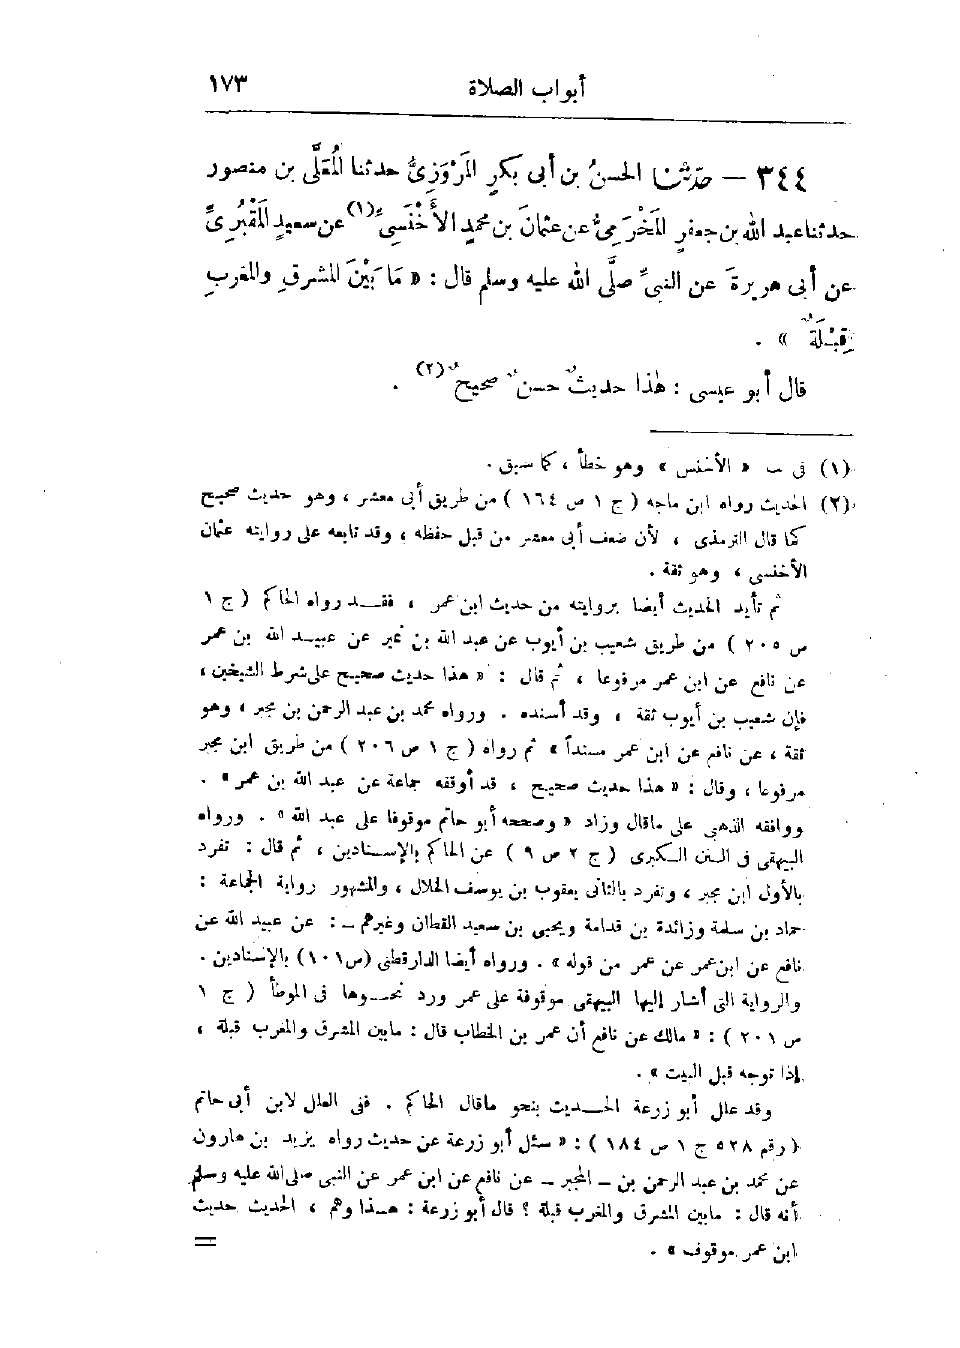 أبواب الصلاة ١٧٣
٣٤٤ — حَدَّثَنَا الحَسَنُ بن أبى بَكرٍ المَرْوَزِىُّ حدثنا المُعَلَّى بن منصور
حدثنا عبد الله بن جعفرٍ المَخْرَمِىُّ عن عثمانَ بن محمدٍ الأَخْنَسِىِّ(١) عن سعيدٍ المَقْبُرِىِّ
عن أبى هريرةَ عن النبىِّ صلَّى الله عليه وسلم قال : « مَا بَيْنَ المشرقِ والمغربِ
قِبْلَةٌ » .
قال أبو عيسى : هٰذا حديثٌ حسنٌ صحيحٌ(٢) .
(١) فى ب « الأخنس » وهو خطأ ، كما سبق .
(٢) الحديث رواه ابن ماجه ( ج ١ ص ١٦٤ ) من طريق أبى معشر ، وهو حديث صحيح
كما قال الترمذى ، لأن ضعف أبى معشر من قبل حفظه ، وقد تابعه على روايته عثمان
الأخنسى ، وهو ثقة .
ثم تأيد الحديث أيضا بروايته من حديث ابن عمر ، فقد رواه الحاكم ( ج ١
ص ٢٠٥ ) من طريق شعيب بن أيوب عن عبد الله بن نمير عن عبيد الله بن عمر
عن نافع عن ابن عمر مرفوعا ، ثم قال : « هذا حديث صحيح على شرط الشيخين ،
فإن شعيب بن أيوب ثقة ، وقد أسنده . ورواه محمد بن عبد الرحمن بن مجبر ، وهو
ثقة ، عن نافع عن ابن عمر مسنداً » ثم رواه ( ج ١ ص ٢٠٦ ) من طريق ابن مجبر
مرفوعا ، وقال : « هذا حديث صحيح ، قد أوقفه جماعة عن عبد الله بن عمر » .
ووافقه الذهبى على ماقال وزاد « وصححه أبو حاتم موقوفا على عبد الله » . ورواه
البيهقى فى السنن الكبرى ( ج ٢ ص ٩ ) عن الحاكم بالإسنادين ، ثم قال : تفرد
بالأول ابن مجبر ، وتفرد بالثانى يعقوب بن يوسف الخلال ، والمشهور رواية الجماعة :
حماد بن سلمة وزائدة بن قدامة ويحيى بن سعيد القطان وغيرهم — : عن عبيد الله عن
نافع عن ابن عمر عن عمر من قوله » . ورواه أيضا الدارقطنى (ص ١٠١) بالإسنادين .
والرواية التى أشار إليها البيهقى موقوفة على عمر ورد نحوها فى الموطأ ( ج ١
ص ٢٠١ ) : « مالك عن نافع أن عمر بن الخطاب قال : مابين المشرق والمغرب قبلة ،
إذا توجه قبل البيت » .
وقد علل أبو زرعة الحديث بنحو ماقال الحاكم . ففى العلل لابن أبى حاتم
( رقم ٥٢٨ ج ١ ص ١٨٤ ) : « سئل أبو زرعة عن حديث رواه يزيد بن هارون
عن محمد بن عبد الرحمن بن — المجبر — عن نافع عن ابن عمر عن النبى صلى الله عليه وسلم
أنه قال : مابين المشرق والمغرب قبلة ؟ قال أبو زرعة : هذا وهم ، الحديث حديث
ابن عمر موقوف » . =